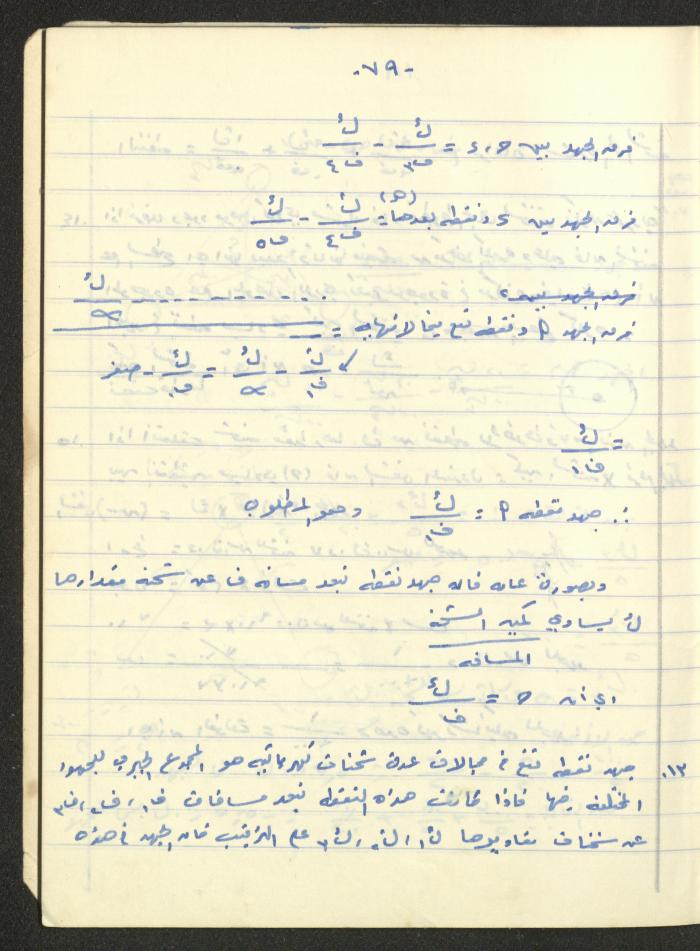 -٧٩-
فرق الجهد بين ح ، د = ك/ف٣ - ك/ف٤
فرق الجهد بين د ونقطه بعدها (هـ) = ك/ف٤ - ك/ف٥
فرق الجهد بين
فرق الجهد ا ونقطه تقع فيما لا نهايه = ك/∞
ك/ف١ - ك/∞ = ك/ف١ - صفر
= ك/ف١
∴ جهد نقطه ا = ك/ف١ وهو المطلوب
وبصورة عامه فان جهد نقطه تبعد مسافه ف عن شحنه مقدارها
ك يساوي كمية الشحنه
المسافه
اي ان ح = ك/ف
١٣. جهد نقطه تقع في مجالات عدة شحنات كهربائيه هو المجموع الجبري للجهود
المختلفه فيها فاذا كانت هذه النقطه تبعد مسافات ف١ ، ف٢ ، ف٣
عن شحنات مقاديرها ك١ ، ك٢ ، ك٣ على الترتيب فان الجهد في هذه